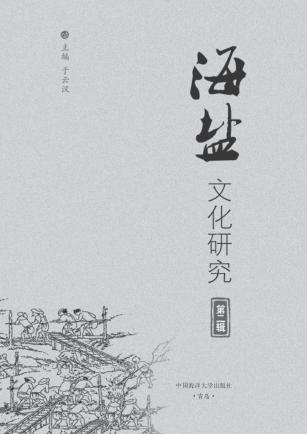 海盐
文化研究
第二辑
主编 于云汉
中国海洋大学出版社
·青岛·